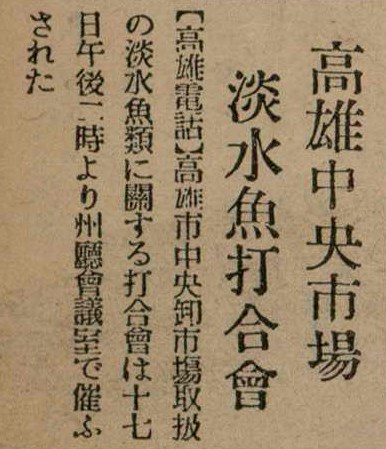 高雄中央市場
淡水魚打合會
【高雄電話】高雄市中央卸市場取扱
の淡水魚類に關する打合會は十七
日午後二時より州廳會議室で催ふ
された